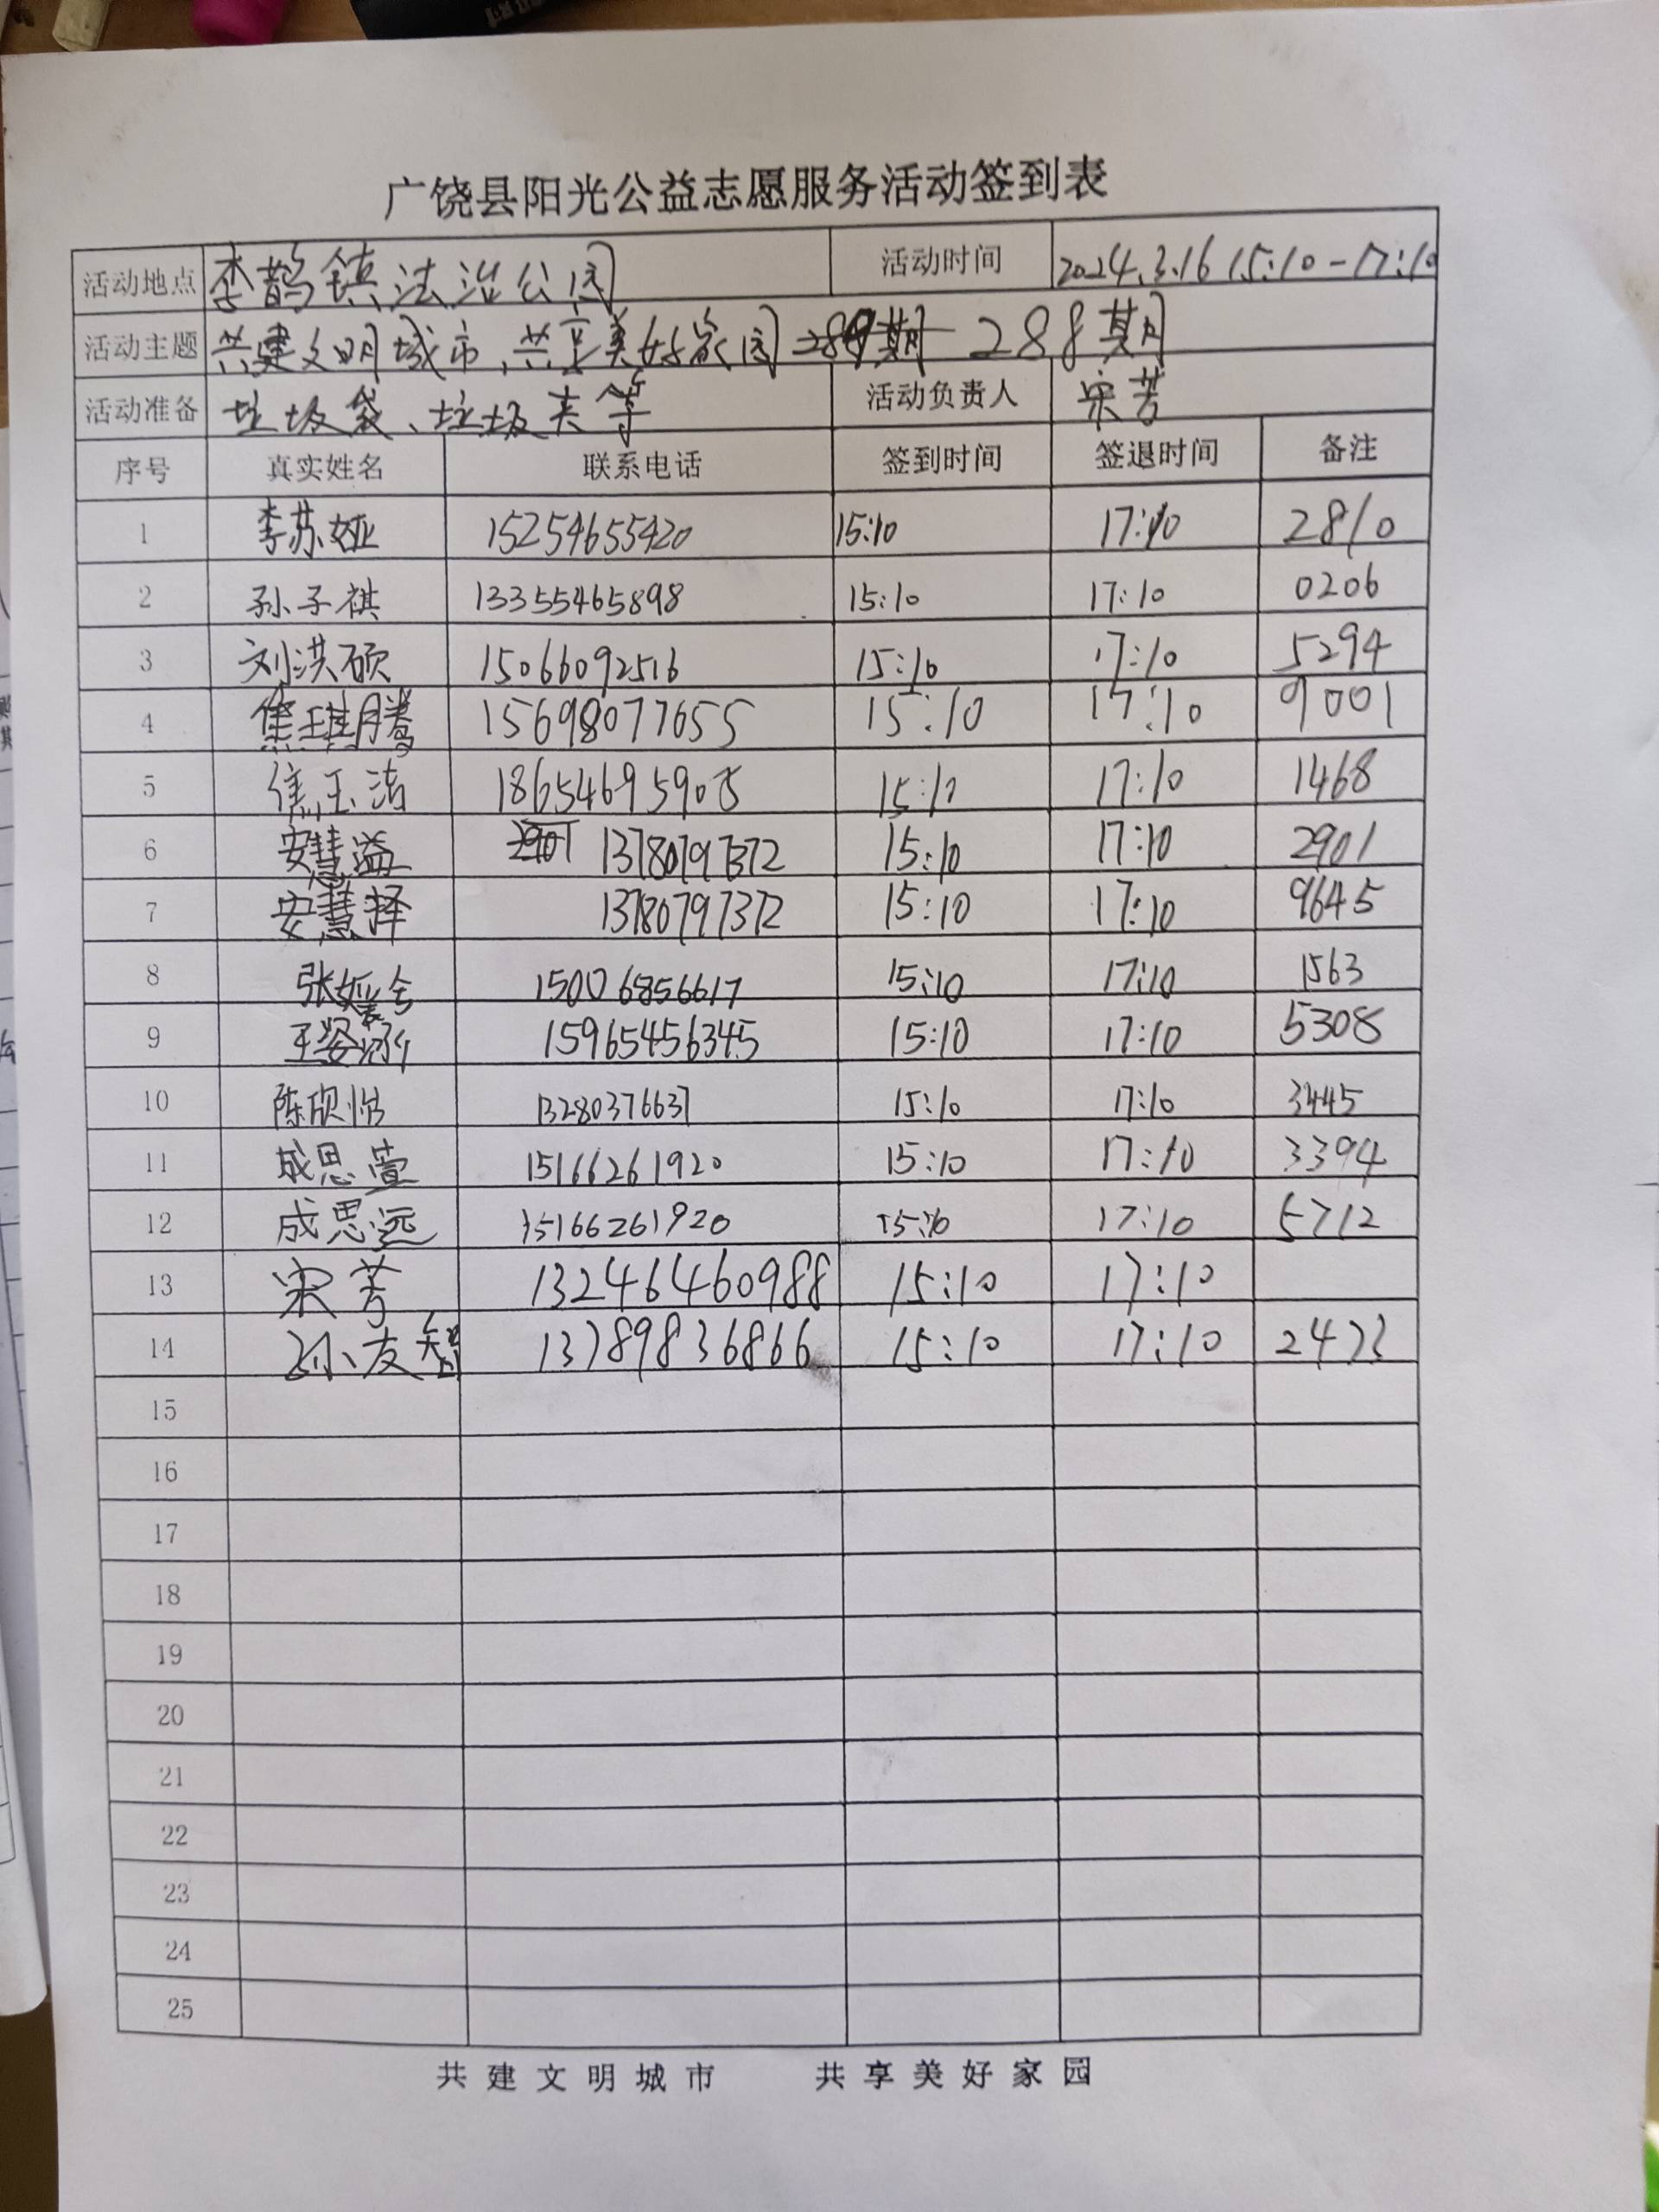 广饶县阳光公益志愿服务活动签到表
活动地点 李鹊镇法治公园 活动时间 2024.3.16 15:10-17:10
活动主题 共建文明城市、共享美好家园 288期
活动准备 垃圾袋、垃圾夹等 活动负责人 宋芳
序号 真实姓名 联系电话 签到时间 签退时间 备注
1 李苏娅 15254655420 15:10 17:10 2810
2 孙子祺 13355465898 15:10 17:10 0206
3 刘洪硕 15066092516 15:10 17:10 5294
4 焦琪腾 15698077655 15:10 17:10 9001
5 焦玉洁 18654695905 15:10 17:10 1468
6 安慧溢 13780797372 15:10 17:10 2901
7 安慧择 13780797372 15:10 17:10 9645
8 张媛 15006856617 15:10 17:10 1563
9 王姿涵 15965456345 15:10 17:10 5308
10 陈欣怡 13280376637 15:10 17:10 3445
11 成思萱 15166261920 15:10 17:10 3394
12 成思远 15166261920 15:10 17:10 5712
13 宋芳 13246460988 15:10 17:10
14 孙友智 13789836866 15:10 17:10 2473
15
16
17
18
19
20
21
22
23
24
25
共建文明城市 共享美好家园